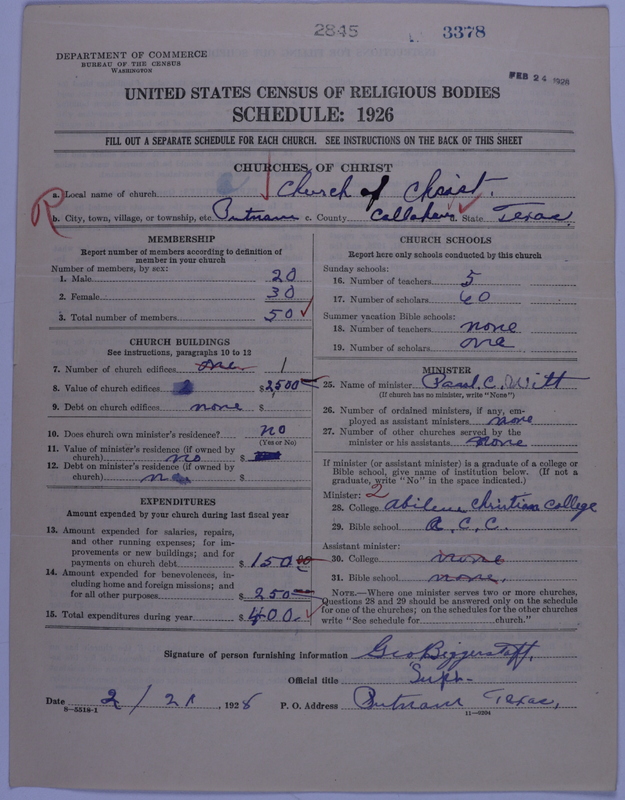 2845 3378
DEPARTMENT OF COMMERCE
BUREAU OF THE CENSUS
WASHINGTON
FEB 24 1928
UNITED STATES CENSUS OF RELIGIOUS BODIES
SCHEDULE: 1926
FILL OUT A SEPARATE SCHEDULE FOR EACH CHURCH. SEE INSTRUCTIONS ON THE BACK OF THIS SHEET
CHURCHES OF CHRIST
R
a. Local name of church Church of Christ.
b. City, town, village, or township, etc. Putnam c. County Callahan d. State Texas
MEMBERSHIP
Report number of members according to definition of
member in your church
Number of members, by sex:
1. Male 20
2. Female 30
3. Total number of members 50
CHURCH BUILDINGS
See instructions, paragraphs 10 to 12
7. Number of church edifices one 1
8. Value of church edifices $ 2,500
9. Debt on church edifices none $
10. Does church own minister's residence? no
(Yes or No)
11. Value of minister's residence (if owned by
church) no $
12. Debt on minister's residence (if owned by
church) $
EXPENDITURES
Amount expended by your church during last fiscal year
13. Amount expended for salaries, repairs,
and other running expenses; for im-
provements or new buildings; and for
payments on church debt $ 150 00
14. Amount expended for benevolences, in-
cluding home and foreign missions; and
for all other purposes $ 250
15. Total expenditures during year $ 400
CHURCH SCHOOLS
Report here only schools conducted by this church
Sunday schools:
16. Number of teachers 5
17. Number of scholars 60
Summer vacation Bible schools:
18. Number of teachers none
19. Number of scholars one
MINISTER
25. Name of minister Paul. C. Witt
(If church has no minister, write "None")
26. Number of ordained ministers, if any, em-
ployed as assistant ministers none
27. Number of other churches served by the
minister or his assistants None
If minister (or assistant minister) is a graduate of a college or
Bible school, give name of institution below. (If not a
graduate, write "No" in the space indicated.)
Minister: 2
28. College Abilene Christian College
29. Bible school A. C. C.
Assistant minister:
30. College none
31. Bible school none.
NOTE.—Where one minister serves two or more churches,
Questions 28 and 29 should be answered only on the schedule
for one of the churches; on the schedules for the other churches
write "See schedule for church."
Signature of person furnishing information Geo Biggerstaff,
Official title Supt.
Date 2 / 21, 1928 P. O. Address Putnam Texas,
8—5518-1 11—9294